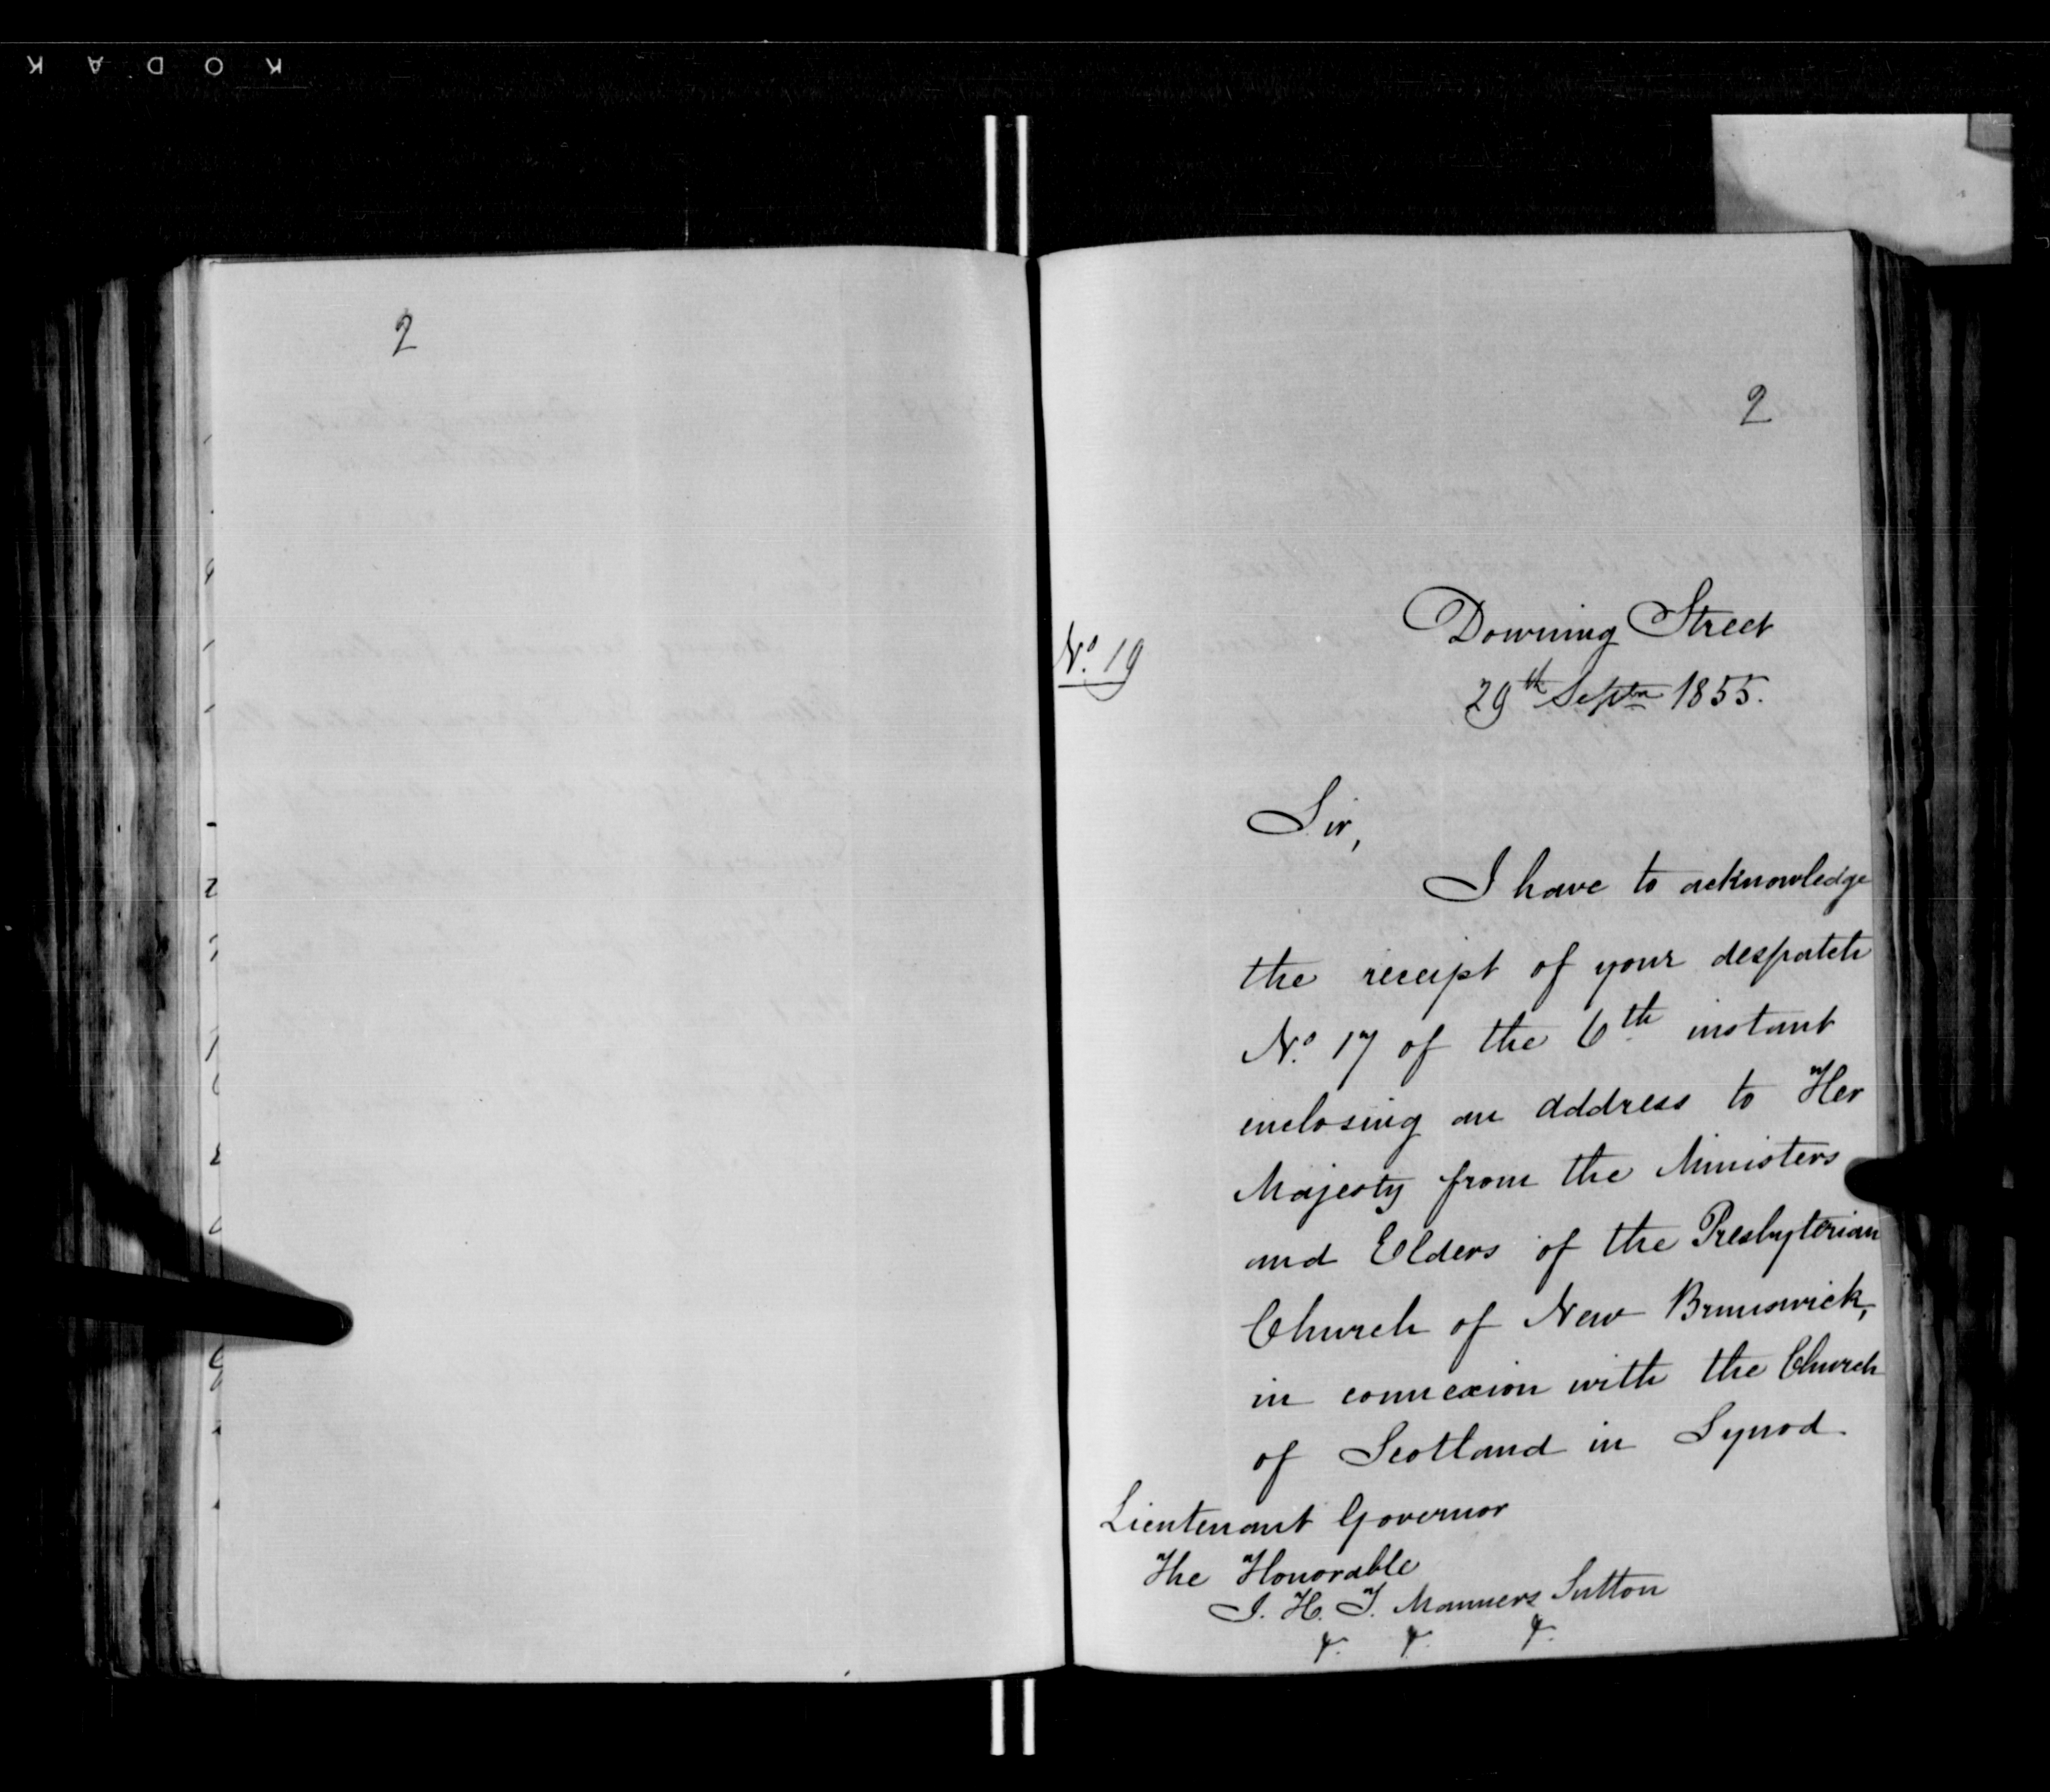 KODAK
2
2
No. 19
Downing Street
29th Septr 1855.
Sir,
I have to acknowledge
the receipt of your despatch
No. 17 of the 6th instant
enclosing an address to Her
Majesty from the Ministers
and Elders of the Presbyterian
Church of New Brunswick,
in connexion with the Church
of Scotland in Synod
Lieutenant Governor
The Honorable
J. H. T. Manners Sutton
&. &. &.